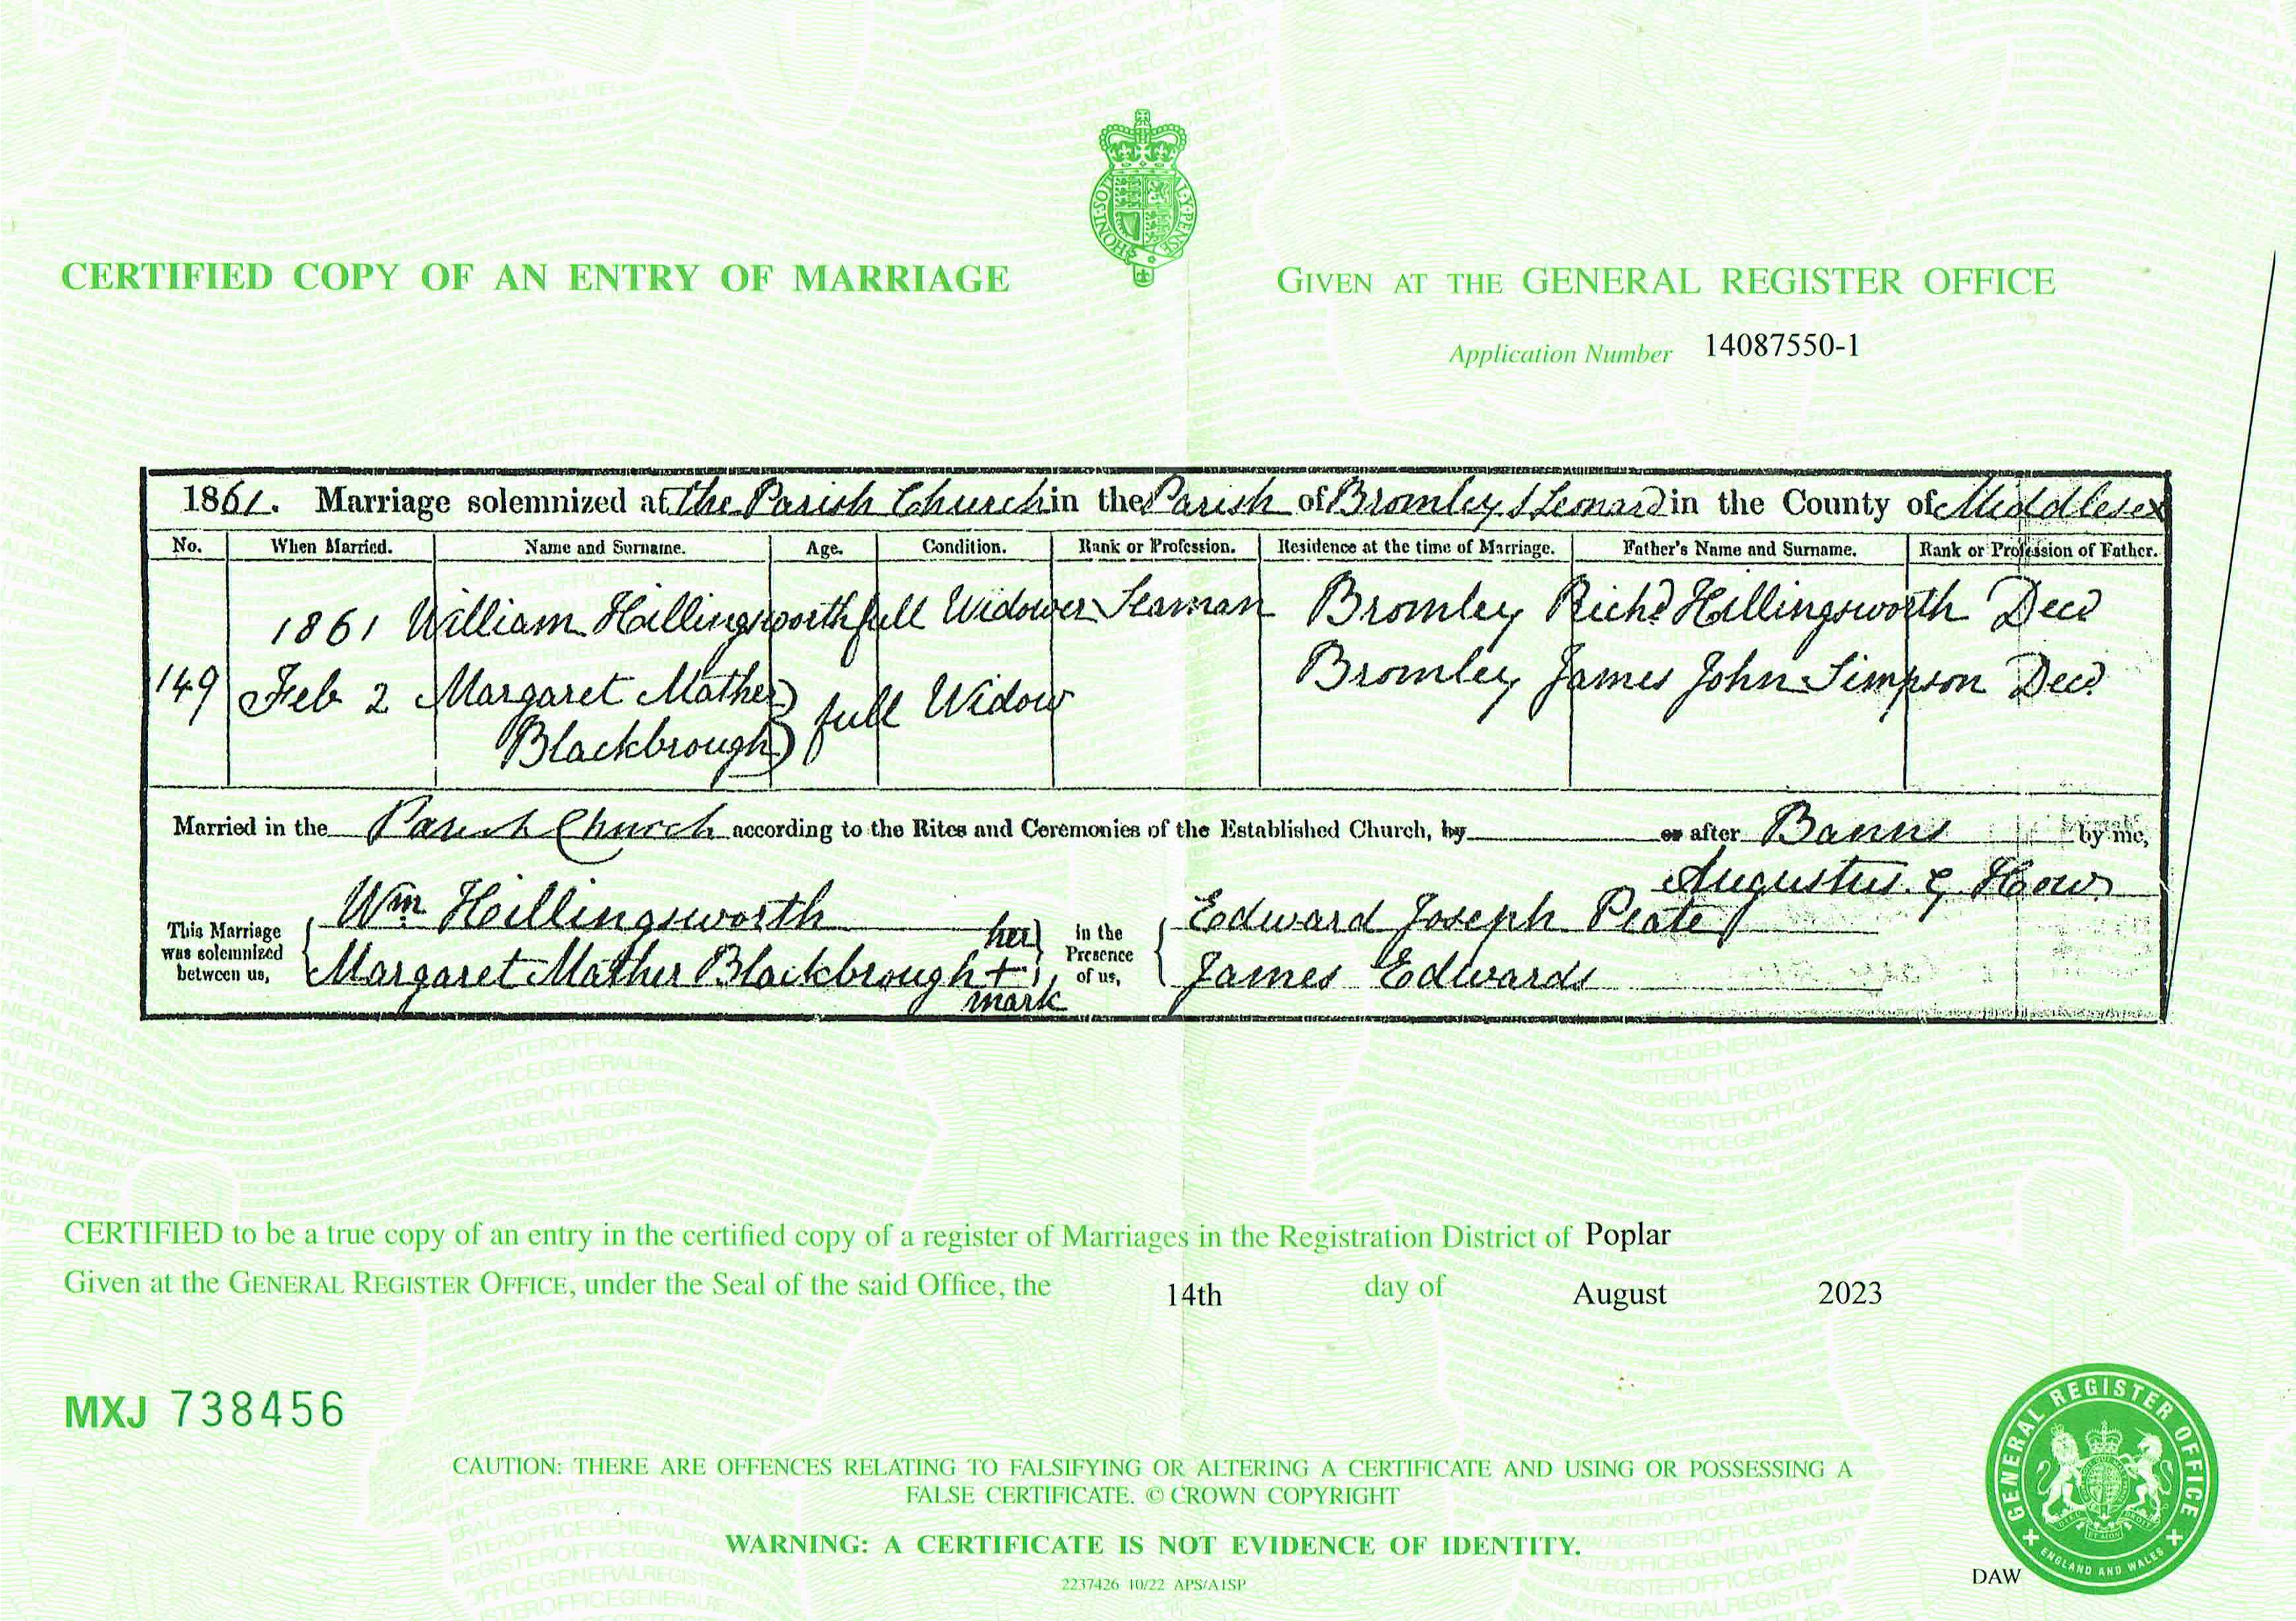 HONI·SOIT
AL·Y·PENSE
CERTIFIED COPY OF AN ENTRY OF MARRIAGE
GIVEN AT THE GENERAL REGISTER OFFICE
Application Number 14087550-1
1861. Marriage solemnized at the Parish Church in the Parish of Bromley S Leonard in the County of Middlesex
No. When Married. Name and Surname. Age. Condition. Rank or Profession. Residence at the time of Marriage. Father's Name and Surname. Rank or Profession of Father.
1861 William Hillingsworth full Widower Seaman Bromley Richd Hillingsworth Decd
149 Feb 2 Margaret Mather Blackbrough full Widow Bromley James John Simpson Decd
Married in the Parish Church according to the Rites and Ceremonies of the Established Church, by or after Banns by me,
Augustus G How
This Marriage was solemnized between us,
Wm Hillingsworth
Margaret Mather Blackbrough her + mark
in the Presence of us,
Edward Joseph Plate
James Edwards
CERTIFIED to be a true copy of an entry in the certified copy of a register of Marriages in the Registration District of Poplar
Given at the GENERAL REGISTER OFFICE, under the Seal of the said Office, the 14th day of August 2023
MXJ 738456
CAUTION: THERE ARE OFFENCES RELATING TO FALSIFYING OR ALTERING A CERTIFICATE AND USING OR POSSESSING A
FALSE CERTIFICATE. © CROWN COPYRIGHT
WARNING: A CERTIFICATE IS NOT EVIDENCE OF IDENTITY.
2237426 10/22 APS/A1SP
DAW
GENERAL REGISTER OFFICE
ENGLAND AND WALES